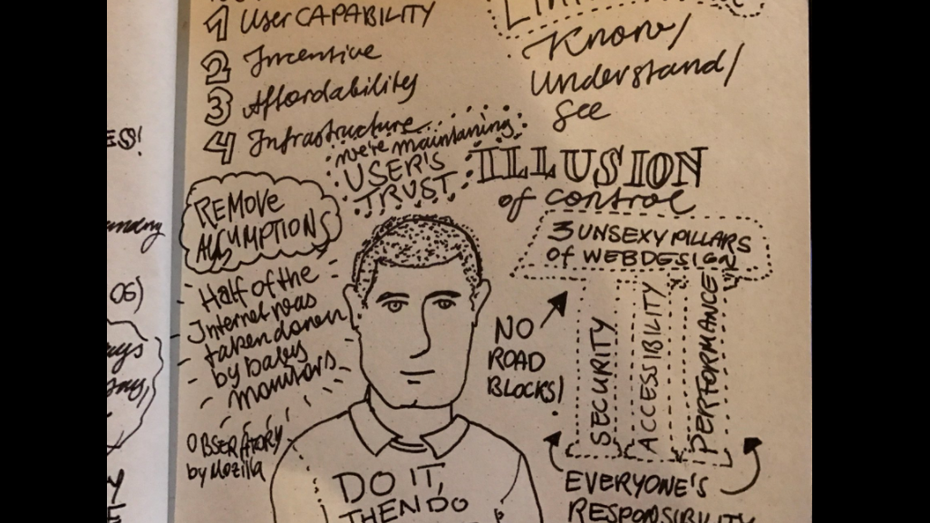 1 User CAPABILITY
2 Incentive
3 Affordability
4 Infrastructure
Know/
understand/
see
we're maintaining
USER'S
TRUST
ILLUSION
of control
REMOVE
ASSUMPTIONS
3 UNSEXY PILLARS
of WEBDESIGN
Half of the
Internet was
taken down
by baby
monitors
NO
ROAD
BLOCKS!
SECURITY
ACCESSIBILITY
PERFORMANCE
OBSERVATORY
by Mozilla
DO IT,
THEN DO
EVERYONE'S
RESPONSIBILITY
ES!
06)